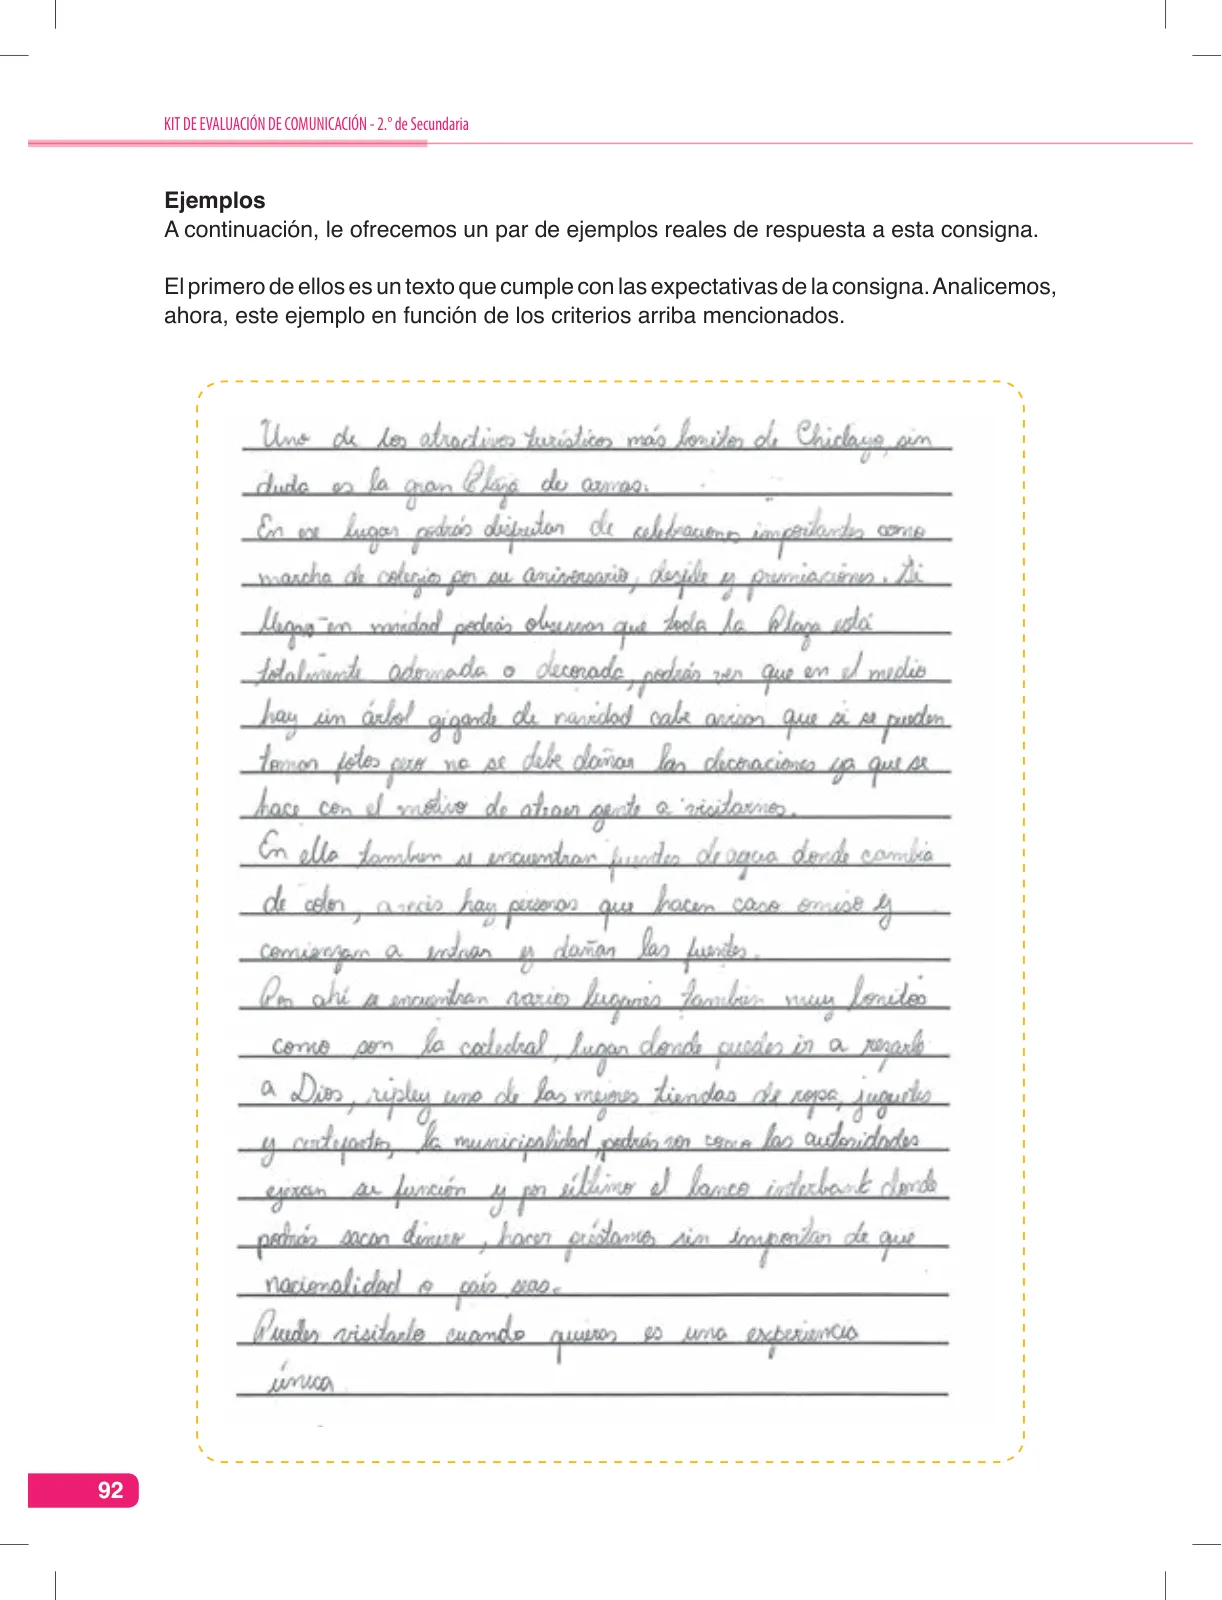 KIT DE EVALUACIÓN DE COMUNICACIÓN - 2.° de Secundaria
Ejemplos
A continuación, le ofrecemos un par de ejemplos reales de respuesta a esta consigna.
El primero de ellos es un texto que cumple con las expectativas de la consigna. Analicemos,
ahora, este ejemplo en función de los criterios arriba mencionados.
Uno de los atractivos turísticos más bonitos de Chiclayo, sin
duda es la gran Plaza de armas.
En ese lugar podrás disfrutar de celebraciones importantes como
marcha de colegio por su aniversario, desfile y premiaciones. Si
llegas en navidad podrás observar que toda la Plaza está
totalmente adornada o decorada, podrás ver que en el medio
hay un árbol gigante de navidad cabe avisar que si se pueden
tomar fotos pero no se debe dañar las decoraciones ya que se
hace con el motivo de atraer gente a visitarnos.
En ella tambien se encuentran fuentes de agua donde cambia
de color, aveces hay personas que hacen caso omiso y
comienzan a entrar y dañar las fuentes.
Por ahí se encuentran varios lugares tambien muy bonitos
como son la catedral, lugar donde puedes ir a rezarle
a Dios, ripley uno de las mejores tiendas de ropa, juguetes
y artefactos, la municipalidad, podrás ver como las autoridades
ejercen su función y por último el banco interbank donde
podrás sacar dinero, hacer préstamos sin importar de que
nacionalidad o país seas.
Puedes visitarlo cuando quieras es una experiencia
única
92